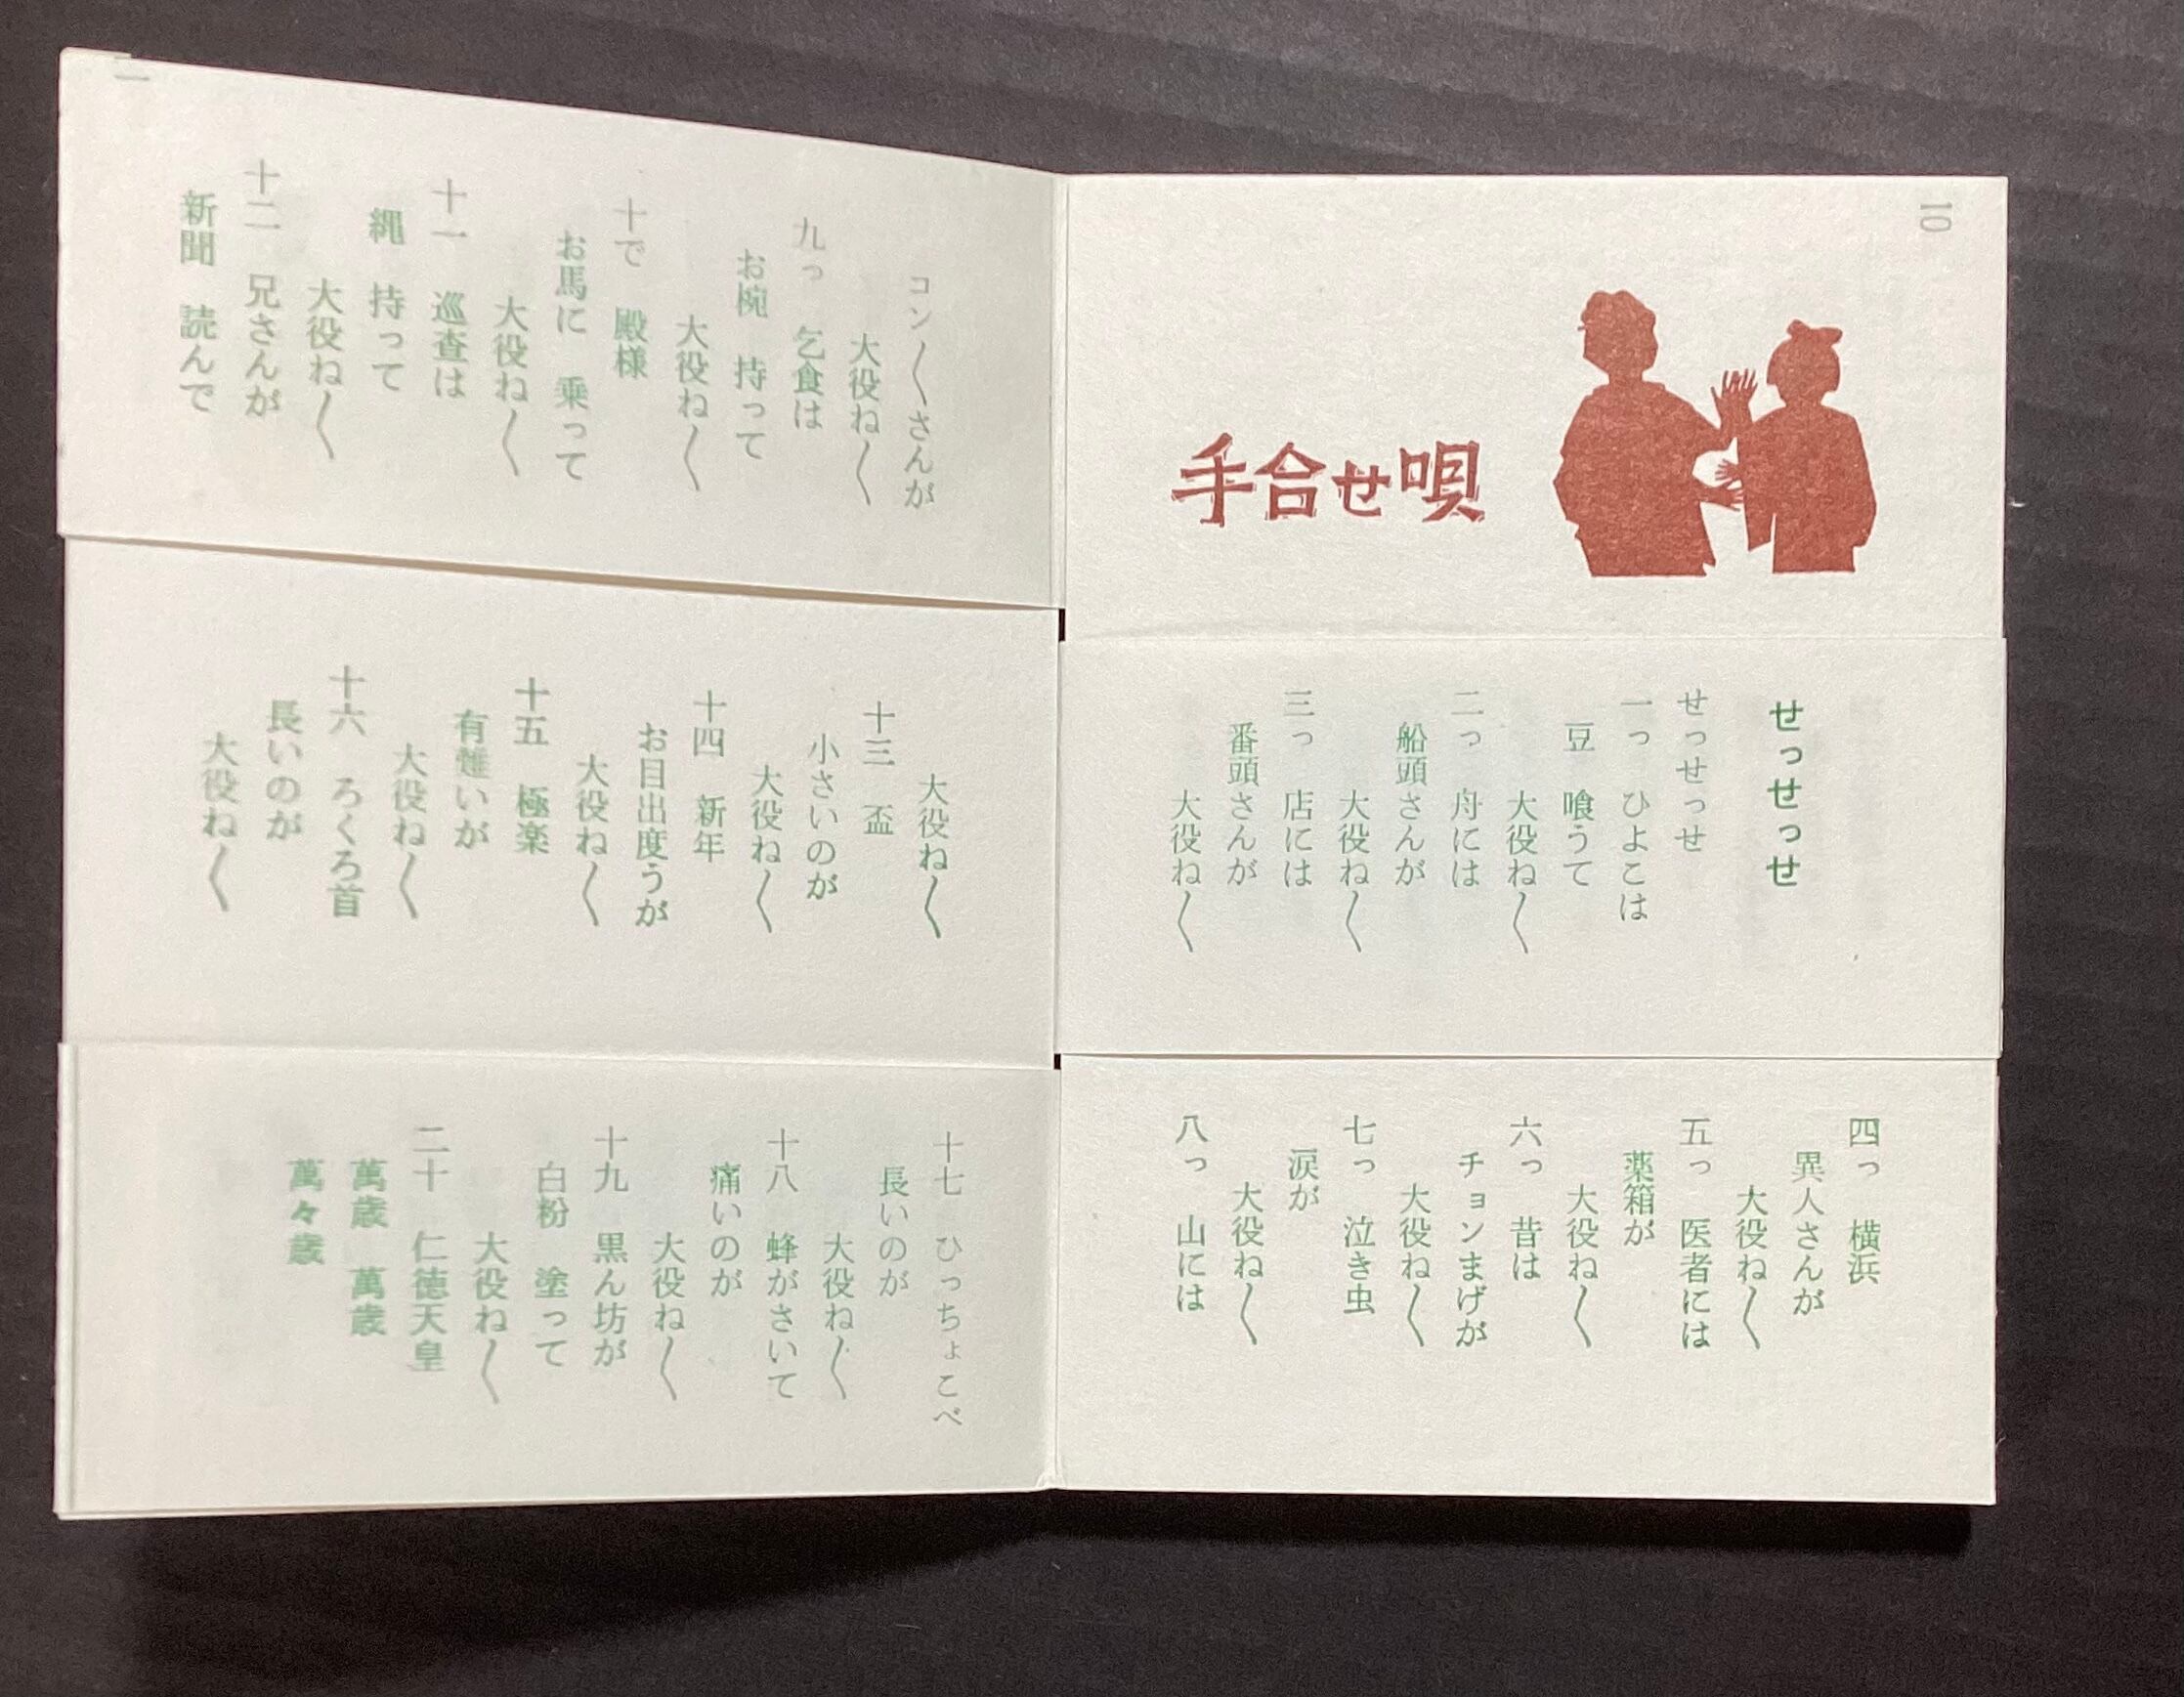 10
手合せ唄
せっせっせ
せっせっせ
一っ　ひよこは
豆　喰うて
大役ね〱
二っ　舟には
船頭さんが
大役ね〱
三っ　店には
番頭さんが
大役ね〱
四っ　横浜
異人さんが
大役ね〱
五っ　医者には
薬箱が
大役ね〱
六っ　昔は
チョンまげが
大役ね〱
七っ　泣き虫
涙が
大役ね〱
八っ　山には
コン〱さんが
大役ね〱
九っ　乞食は
お椀　持って
大役ね〱
十で　殿様
お馬に　乗って
大役ね〱
十一　巡査は
縄　持って
大役ね〱
十二　兄さんが
新聞　読んで
大役ね〱
十三　盃
小さいのが
大役ね〱
十四　新年
お目出度うが
大役ね〱
十五　極楽
有難いが
大役ね〱
十六　ろくろ首
長いのが
大役ね〱
十七　ひっちょこべ
長いのが
大役ね〱
十八　蜂がさいて
痛いのが
大役ね〱
十九　黒ん坊が
白粉　塗って
大役ね〱
二十　仁徳天皇
萬歳　萬歳
萬々歳